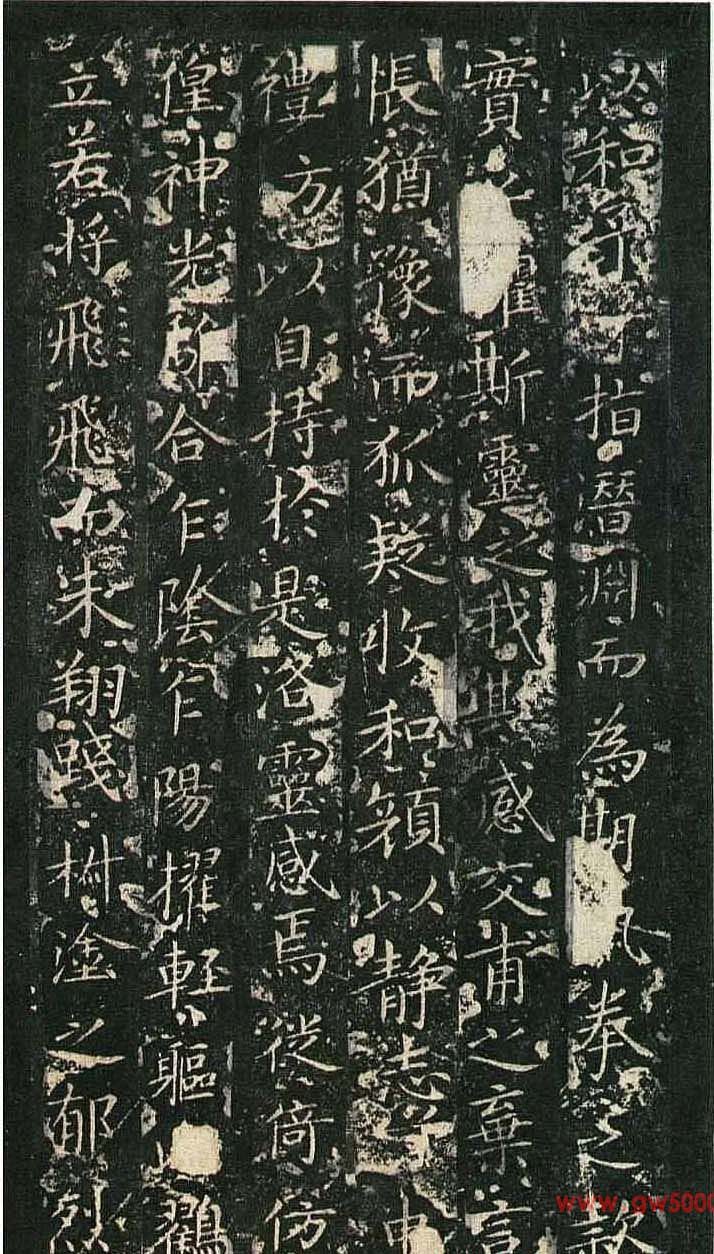 以和予兮指潛淵而為期執拳之款
實兮懼斯靈之我欺感交甫之棄言
悵猶豫而狐疑收和顏以静志兮申
禮方以自持於是洛靈感焉徙倚仿
偟神光離合乍陰乍陽擢輕軀以鶴
立若將飛飛而未翔踐椒塗之郁烈
www.gw5000